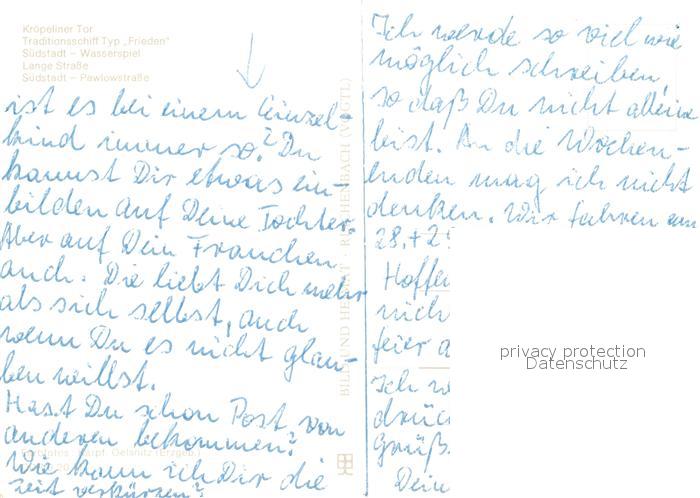 Kröpeliner Tor
Traditionsschiff Typ „Frieden"
Südstadt – Wasserspiel
Lange Straße
Südstadt – Pawlowstraße
ist es bei einem Einzel-
kind immer so? Du
kannst Dir etwas ein-
bilden auf Deine Tochter.
Aber auf Dein Frauchen
auch. Die liebt Dich mehr
als sich selbst, auch
wenn Du es nicht glau-
ben willst.
Hast Du schon Post von
anderen bekommen?
Wie kann ich Dir die
Zeit verkürzen?
BILD UND HEIMAT · REICHENBACH (VOGTL)
Ich werde so viel wie
möglich schreiben,
so daß Du nicht alleine
bist. An die Wochen-
enden mag ich nicht
denken. Wir fahren am
28.+29
Hoffe
nich
feier a
Ich w
drüc
Grüß
Dein
privacy protection
Datenschutz